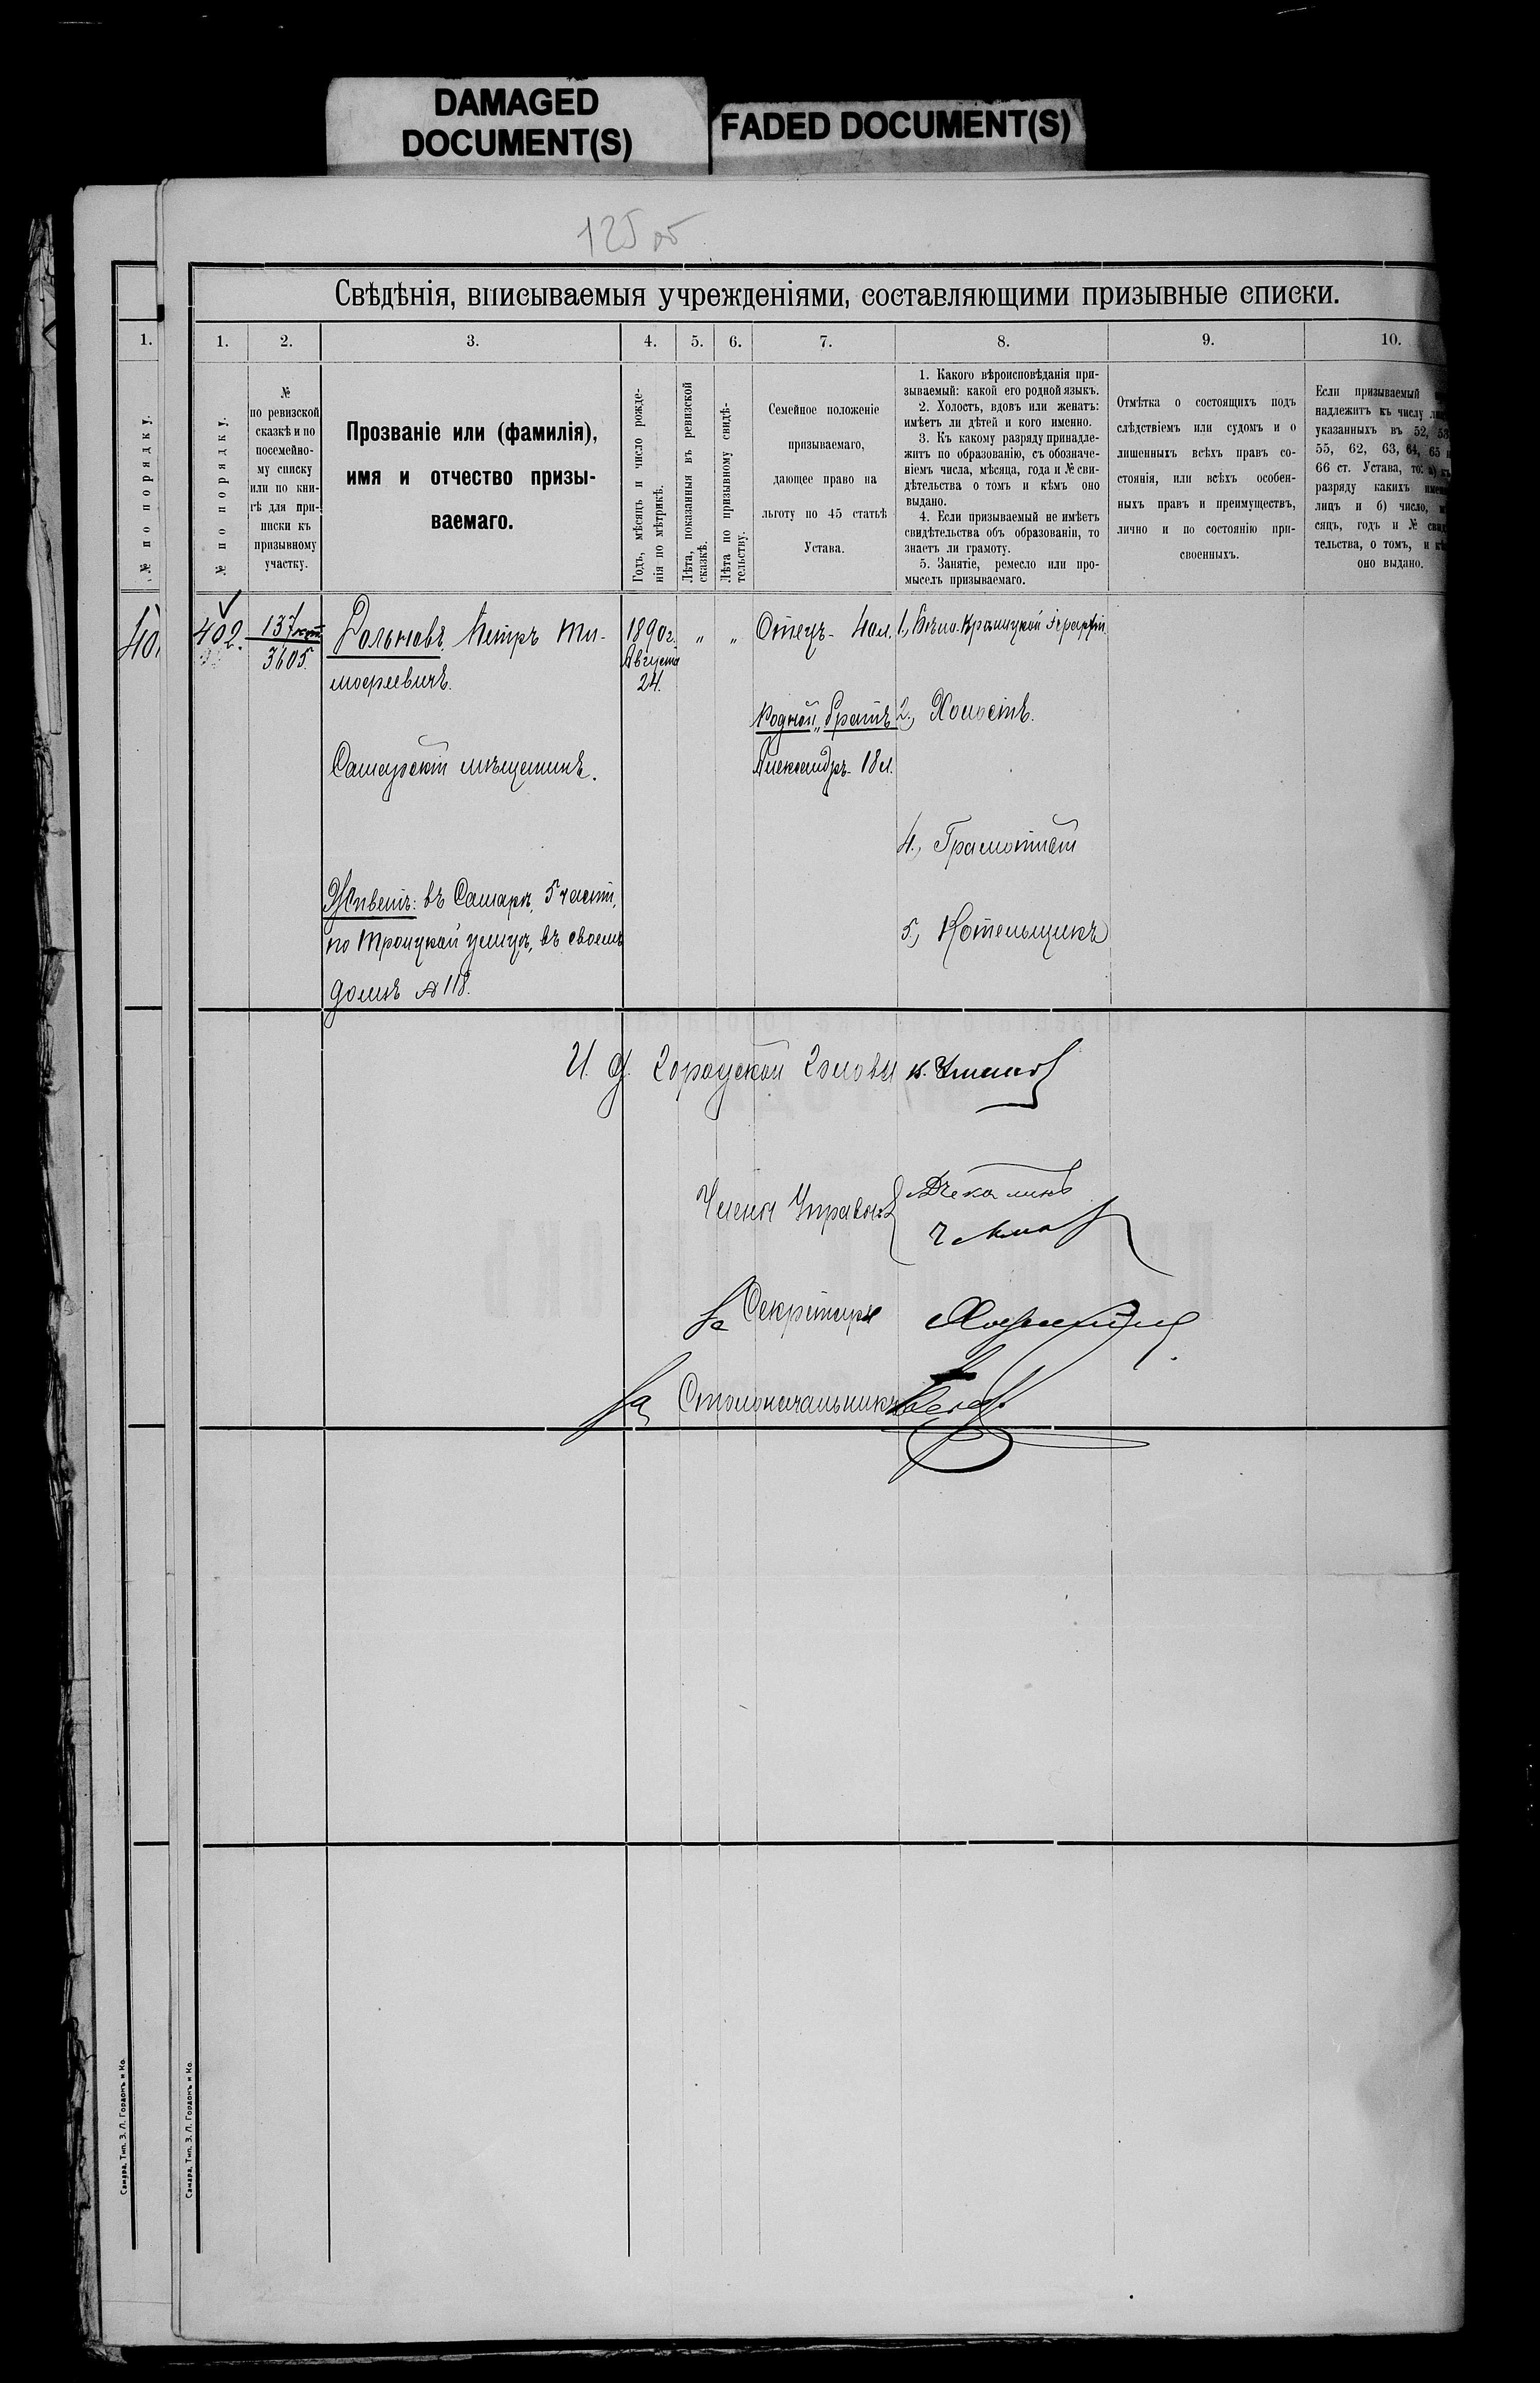 DAMAGED
DOCUMENT(S)
FADED DOCUMENT(S)
125 об
Свѣдѣнія, вписываемыя учрежденіями, составляющими призывные списки.
1.
1.
2.
3.
4.
5.
6.
7.
8.
9.
10.
№ по порядку.
№ по порядку.
№
по ревизской
сказкѣ и по
посемейно-
му списку
или по кни-
гѣ для при-
писки къ
призывному
участку.
Прозваніе или (фамилія),
имя и отчество призы-
ваемаго.
Годъ, мѣсяцъ и число рожде-
нія по метрикѣ.
Лѣта, показанныя въ ревизской
сказкѣ.
Лѣта по призывному свидѣ-
тельству.
Семейное положеніе
призываемаго,
дающее право на
льготу по 45 статьѣ
Устава.
1. Какого вѣроисповѣданія при-
зываемый: какой его родной языкъ.
2. Холостъ, вдовъ или женатъ:
имѣетъ ли дѣтей и кого именно.
3. Къ какому разряду принадле-
житъ по образованію, съ обозначе-
ніемъ числа, мѣсяца, года и № сви-
дѣтельства о томъ и кѣмъ оно
выдано.
4. Если призываемый не имѣетъ
свидѣтельства объ образованіи, то
знаетъ ли грамоту.
5. Занятіе, ремесло или про-
мыселъ призываемаго.
Отмѣтка о состоящихъ подъ
слѣдствіемъ или судомъ и о
лишенныхъ всѣхъ правъ со-
стоянія, или всѣхъ особен-
ныхъ правъ и преимуществъ,
лично и по состоянію при-
своенныхъ.
Если призываемый
надлежитъ къ числу
указанныхъ въ 52, 53
55, 62, 63, 64, 65 и
66 ст. Устава, то: а) къ
разряду какихъ
лицъ и б) число,
сяцъ, годъ и №
тельства, о томъ, и
оно выдано.
402.
137
3605.
Дольновъ, Петръ Ти-
мофеевичъ.
Самарскій мѣщанинъ.
Живетъ: въ Самарѣ, 5 части,
по Троицкой улицѣ, въ своемъ
домѣ № 118.
1890 г.
Августа
24.
"
"
Отецъ - 40 л.
Родной братъ
Александръ - 18 л.
1., Бѣло-Криницкой Іерархіи
2., Холостъ.
4., Грамотный
5., Котельщикъ
И. д. Городской Головы
Члены Управы
Чекалинъ
За Секретаря
За Столоначальника
Самара, Тип. З. Л. Гордонъ и Ко.
Самара, Тип. З. Л. Гордонъ и Ко.